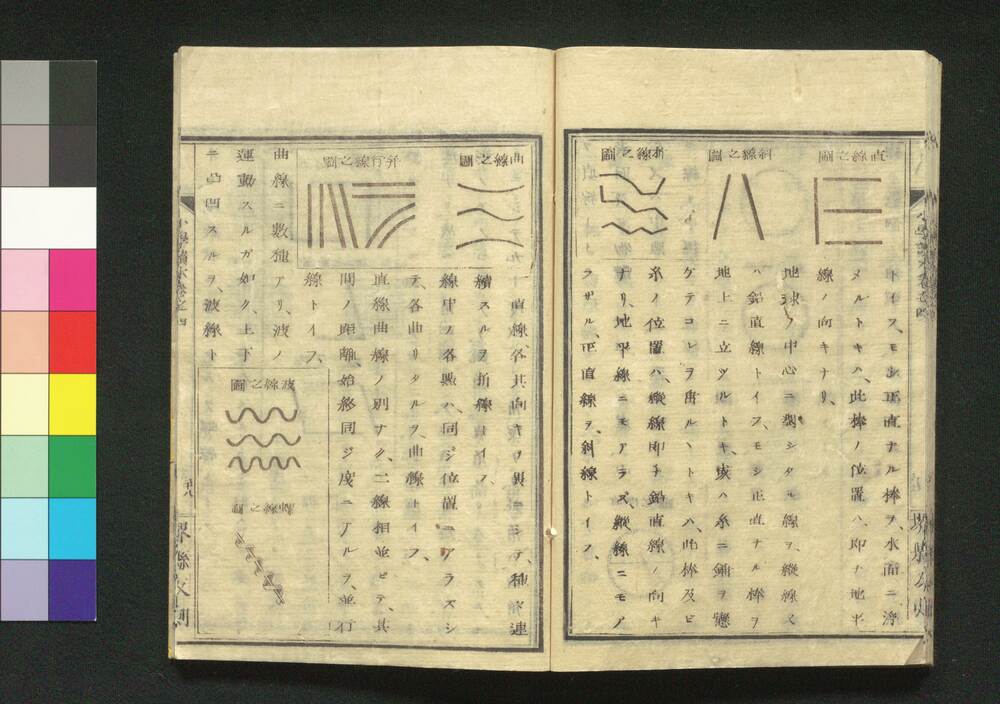 直線之圖
斜線之圖
折線之圖
トイフ、モシ正直ナル棒ヲ、水面ニ浮
メルトキハ、此棒ノ位置ハ、即チ地平
線ノ向キナリ、
地球ノ中心ニ對シタル線ヲ、縱線又
ハ鉛直線トイフ、モシ正直ナル棒ヲ
地上ニ立ツルトキ、或ハ糸ニ錘ヲ懸
ゲテコレヲ用ルヽトキハ、此棒及ビ
糸ノ位置ハ、縱線即チ鉛直線ノ向キ
ナリ、地平線ニモアラズ、縱線ニモア
ラザル、正直線ヲ、斜線トイフ、
曲線之圖
并行線之圖
一直線、各其向キヲ異ニシテ、種々連
續スルヲ折線トイフ、
線中ノ各點ハ、同ジ位置ニアラズシ
テ、各曲リタルヲ、曲線トイフ、
直線曲線ノ別ナク、二線相並ビテ、其
間ノ距離、始終同ジ度ニアルヲ、並行
線トイフ、
曲線ニ數種アリ、波ノ
運動スルガ如ク、上下
ニ凸凹スルヲ、波線ト
波線之圖
線之圖
小學讀本卷之四